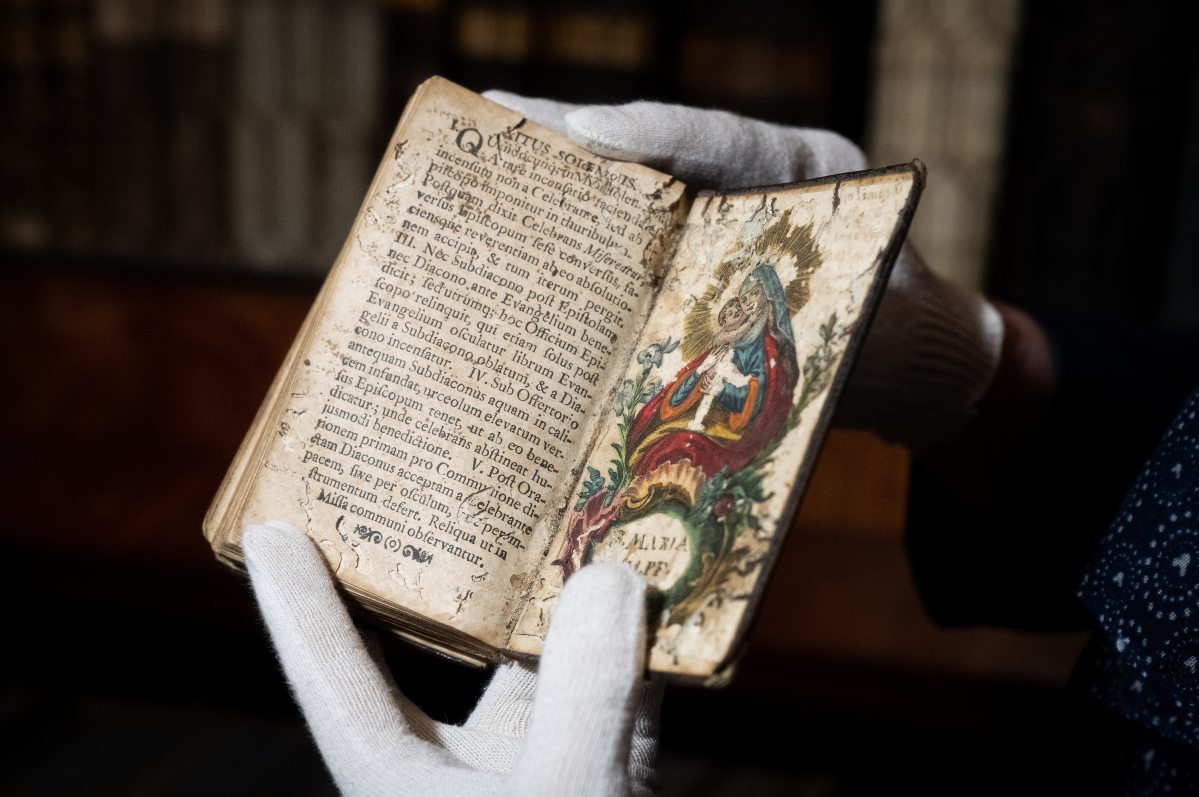 RITUS SOLEMNIS.
incensum non a Celebrante, sed ab
piscopo imponitur in thuribulo.
Postquam dixit Celebrans Misereatur
versus Episcopum sese conversus, fa-
ciensque reverentiam ab eo absolutio-
nem accipit, & tum iterum pergit.
III. Nec Subdiacono post Epistolam
nec Diacono ante Evangelium bene-
dicit; sed utrumq; hoc Officium Epi-
scopo relinquit, qui etiam solus post
Evangelium osculatur librum Evan-
gelii a Subdiacono oblatum, & a Dia-
cono incensatur. IV. Sub Offertorio
antequam Subdiaconus aquam in cali-
cem infundat, urceolum elevatum ver-
sus Episcopum tenet, ut ab eo bene-
dicatur; unde celebrans abstineat hu-
jusmodi benedictione. V. Post Ora-
tionem primam pro Communione di-
ctam Diaconus acceptam a Celebrante
pacem, sive per osculum, sive per in-
strumentum defert. Reliqua ut in
Missa communi observantur.
(o)
S. MARIA